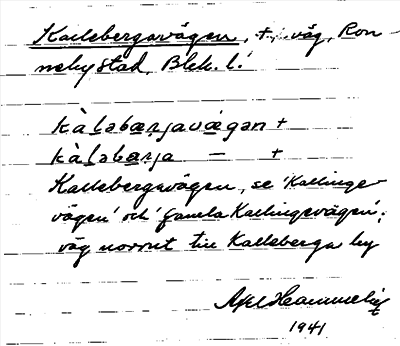 Kallebergavägen, +, väg, Ron-
neby stad, Blek. l.
kàlabærjavægan +
kàlabærja — +
Kallebergavägen, se 'Kallinge-
vägen' och 'gamla Kallingevägen';
väg norrut till Kalleberga by
Axel
1941